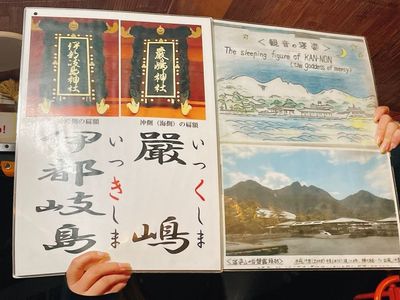 伊都岐島神社
嚴嶋神社
側の扁額
沖側（海側）の扁額
伊都岐島
いつきしま
嚴嶋
いつくしま
＜観音の寝姿＞
The sleeping figure of KAN-NON
(the Goddess of mercy)